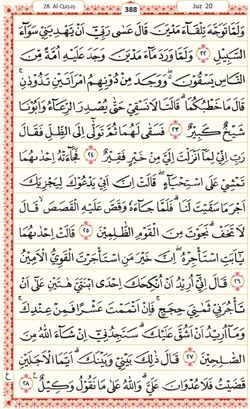 28. Al-Qaṣaṣ 388 Juz 20
وَلَمَّا تَوَجَّهَ تِلْقَآءَ مَدْيَنَ قَالَ عَسٰى رَبِّيْٓ اَنْ يَّهْدِيَنِيْ سَوَآءَ
السَّبِيْلِ ٢٢ وَلَمَّا وَرَدَ مَآءَ مَدْيَنَ وَجَدَ عَلَيْهِ اُمَّةً مِّنَ
النَّاسِ يَسْقُوْنَ ەۖ وَوَجَدَ مِنْ دُوْنِهِمُ امْرَاَتَيْنِ تَذُوْدٰنِۚ
قَالَ مَا خَطْبُكُمَاۗ قَالَتَا لَا نَسْقِيْ حَتّٰى يُصْدِرَ الرِّعَآءُ وَاَبُوْنَا
شَيْخٌ كَبِيْرٌ ٢٣ فَسَقٰى لَهُمَا ثُمَّ تَوَلّٰىٓ اِلَى الظِّلِّ فَقَالَ
رَبِّ اِنِّيْ لِمَآ اَنْزَلْتَ اِلَيَّ مِنْ خَيْرٍ فَقِيْرٌ ٢٤ فَجَآءَتْهُ اِحْدٰىهُمَا
تَمْشِيْ عَلَى اسْتِحْيَآءٍۖ قَالَتْ اِنَّ اَبِيْ يَدْعُوْكَ لِيَجْزِيَكَ
اَجْرَ مَا سَقَيْتَ لَنَاۗ فَلَمَّا جَآءَهٗ وَقَصَّ عَلَيْهِ الْقَصَصَۙ قَالَ
لَا تَخَفْۗ نَجَوْتَ مِنَ الْقَوْمِ الظّٰلِمِيْنَ ٢٥ قَالَتْ اِحْدٰىهُمَا
يٰٓاَبَتِ اسْتَأْجِرْهُۖ اِنَّ خَيْرَ مَنِ اسْتَأْجَرْتَ الْقَوِيُّ الْاَمِيْنُ
٢٦ قَالَ اِنِّيْٓ اُرِيْدُ اَنْ اُنْكِحَكَ اِحْدَى ابْنَتَيَّ هٰتَيْنِ عَلٰٓى اَنْ
تَأْجُرَنِيْ ثَمٰنِيَ حِجَجٍۚ فَاِنْ اَتْمَمْتَ عَشْرًا فَمِنْ عِنْدِكَۚ
وَمَآ اُرِيْدُ اَنْ اَشُقَّ عَلَيْكَۗ سَتَجِدُنِيْٓ اِنْ شَآءَ اللّٰهُ مِنَ
الصّٰلِحِيْنَ ٢٧ قَالَ ذٰلِكَ بَيْنِيْ وَبَيْنَكَۗ اَيَّمَا الْاَجَلَيْنِ
قَضَيْتُ فَلَا عُدْوَانَ عَلَيَّۗ وَاللّٰهُ عَلٰى مَا نَقُوْلُ وَكِيْلٌ ٢٨
ع